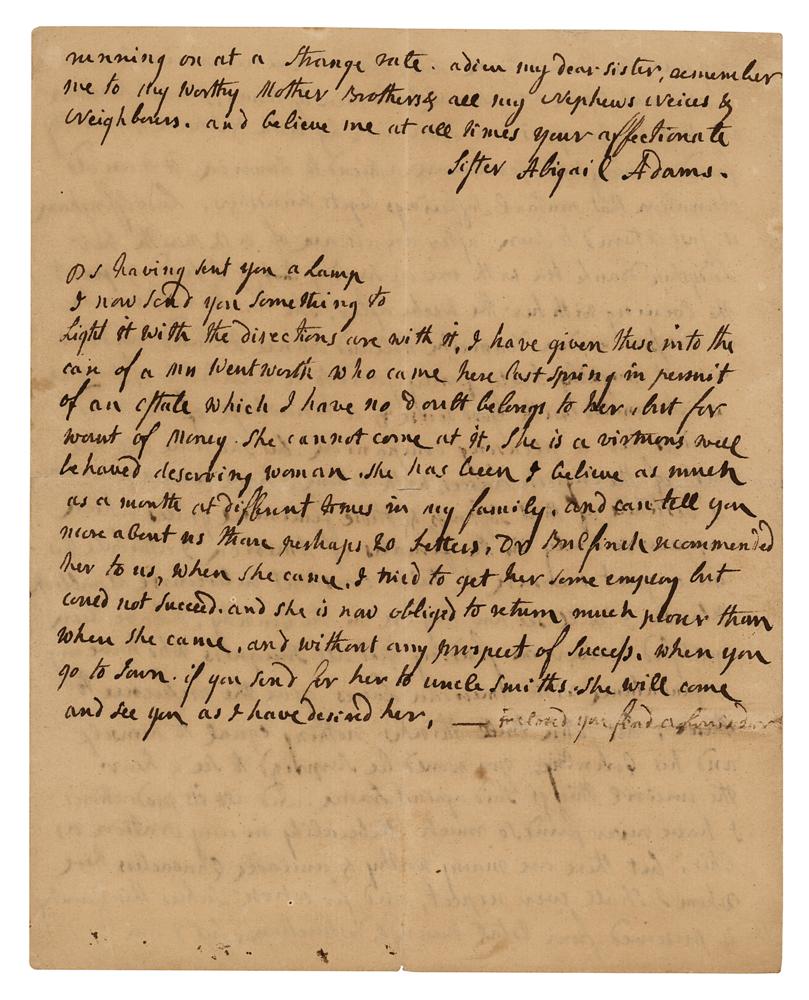 running on at a strange rate. adieu my dear sister, remember
me to my worthy Mother Brothers & all my Nephews Neices &
Neighbours. and believe me at all times your affectionate
Sister Abigail Adams.
PS having sent you a Lamp
I now send you something to
Light it with the directions are with it, I have given these into the
care of a Mrs Wentworth who came here last spring in persuit
of an estate which I have no doubt belongs to her, but for
want of Money. she cannot come at it, She is a virtuous well
behaved deserving woman. she has been I believe as much
as a month at different times in my family. and can tell you
more about us than perhaps 20 Letters, Dr Bulfinch recommended
her to us, when she came. I tried to get her some employ but
could not succeed. and she is now obliged to return much poorer than
when she came, and without any prospect of Success. when you
go to Town. if you send for her to uncle Smiths. she will come
and see you as I have desired her, — inclosed you find a